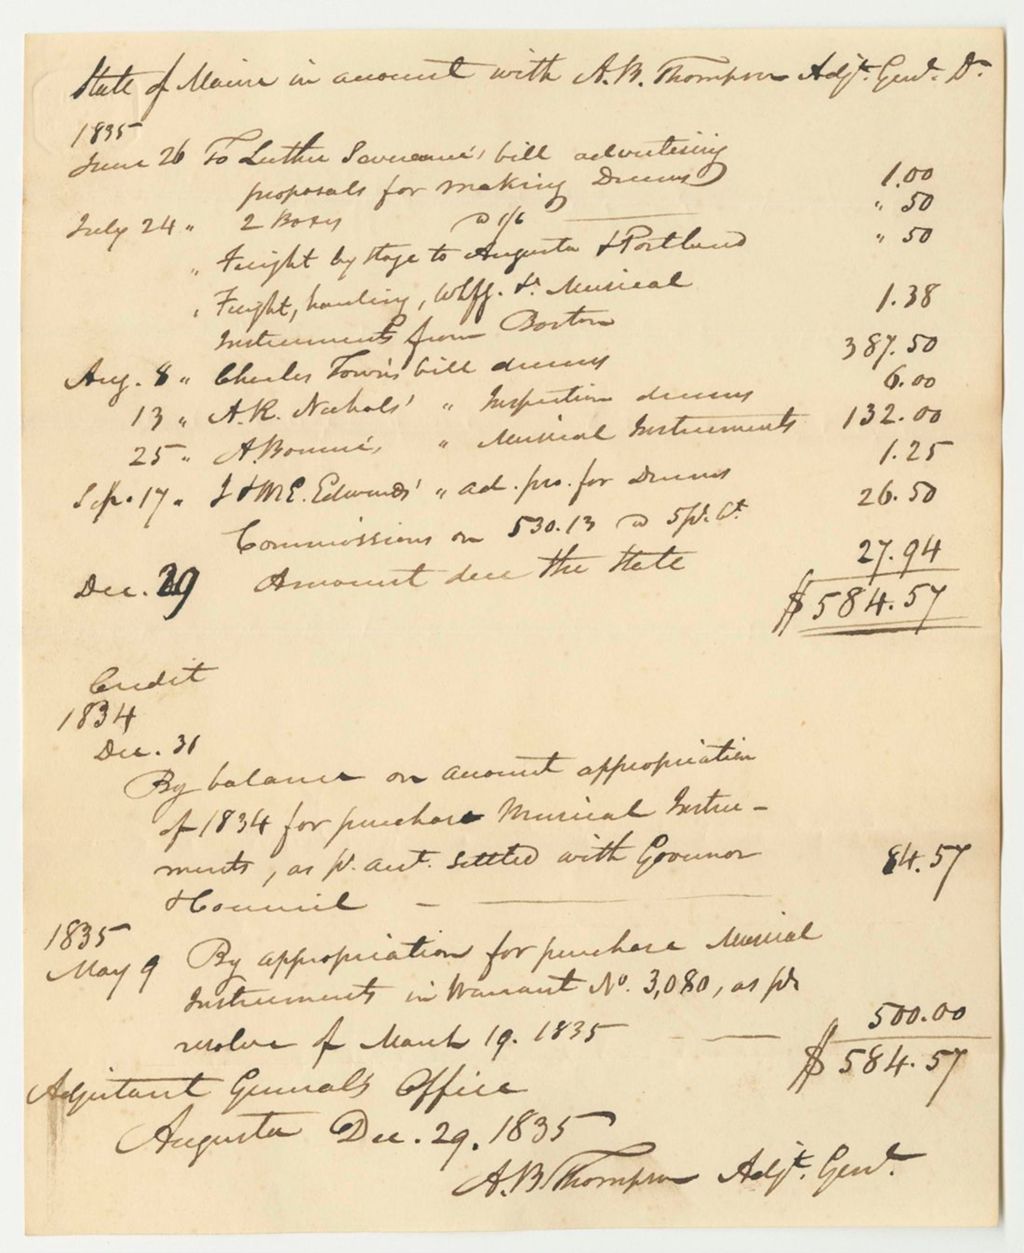 State of Maine in account with A.B. Thompson Adjt. Genl. Dr.
1835
June 26 To Luther Severance's bill advertising
proposals for making Drums 1.00
July 24 " 2 Boxes @ 1/6 " 50
" Freight by stage to Augusta & Portland " 50
" Freight, hauling, Whff. &c. Musical
Instruments from Boston 1.38
Aug. 8 " Charles Town's bill drums 387.50
13 " A.R. Nichols' " Inspection drums 6.00
25 " A. " Musical Instruments 132.00
Sep. 17 " J & W.E. Edwards' " ad. pro. for Drums 1.25
Commissions on 530.13 @ 5 pr. Ct. 26.50
Dec. 29 Amount due the State 27.94
$584.57
Credit
1834
Dec. 31
By balance on account appropriation
of 1834 for purchase Musical Instru-
ments, as pr. acct. settled with Governor
& Council — 84.57
1835
May 9 By appropriation for purchase Musical
Instruments in Warrant No. 3,080, as pr
resolve of March 19. 1835 — 500.00
$584.57
Adjutant General's Office
Augusta Dec. 29. 1835
A.B. Thompson Adjt. Genl.